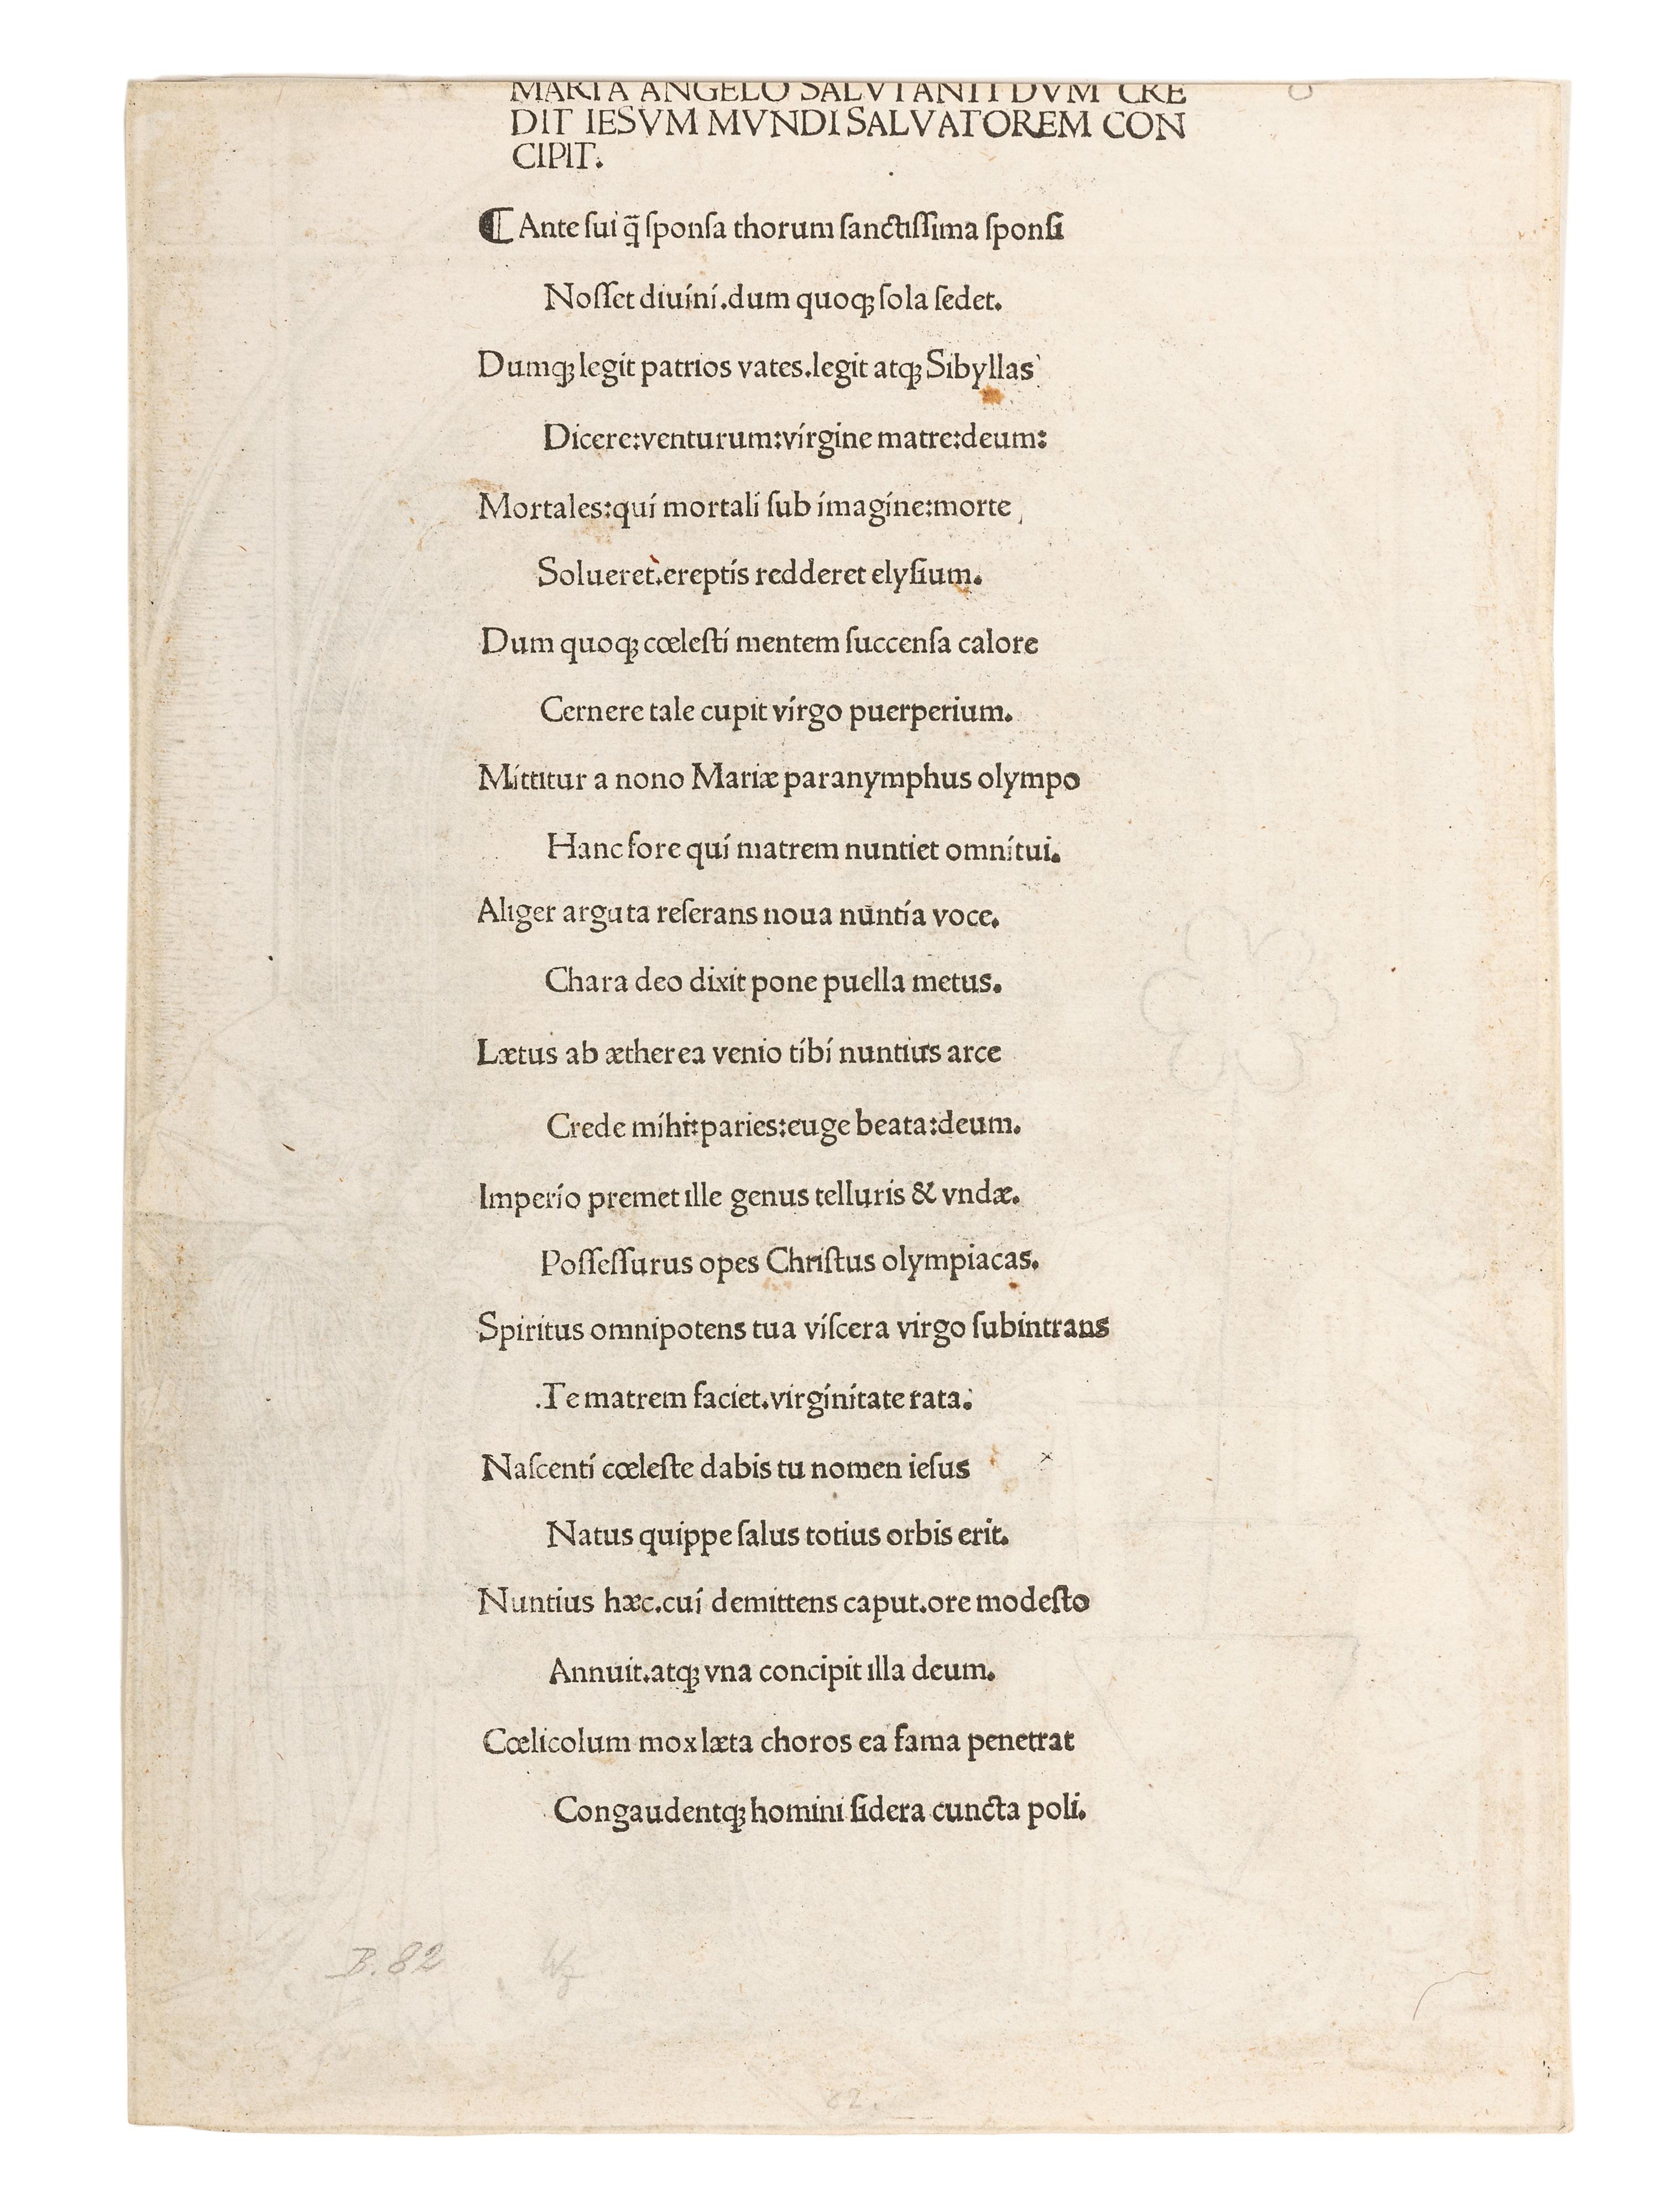 MARIA ANGELO SALVTANTI DVM CRE
DIT IESVM MVNDI SALVATOREM CON
CIPIT.
⸿ Ante ſui q̄ ſponſa thorum ſanctiſſima ſponſi
Noſſet diuini.dum quoqꝫ ſola ſedet.
Dumqꝫ legit patrios vates.legit atqꝫ Sibyllas
Dicere:venturum:virgine matre:deum:
Mortales:qui mortali ſub imagine:morte
Solueret.ereptis redderet elyſium.
Dum quoqꝫ cœleſti mentem ſuccenſa calore
Cernere tale cupit virgo puerperium.
Mittitur a nono Mariæ paranymphus olympo
Hanc fore qui matrem nuntiet omnitui.
Aliger arguta reſerans noua nuntia voce.
Chara deo dixit pone puella metus.
Lætus ab ætherea venio tibi nuntius arce
Crede mihi:paries:euge beata:deum.
Imperio premet ille genus telluris & vndæ.
Poſſeſſurus opes Chriſtus olympiacas.
Spiritus omnipotens tua viſcera virgo ſubintrans
.Te matrem faciet.virginitate rata.
Naſcenti cœleſte dabis tu nomen ieſus
Natus quippe ſalus totius orbis erit.
Nuntius hæc.cui demittens caput.ore modeſto
Annuit.atqꝫ vna concipit illa deum.
Cœlicolum mox læta choros ea fama penetrat
Congaudentqꝫ homini ſidera cuncta poli.
B. 82
82.